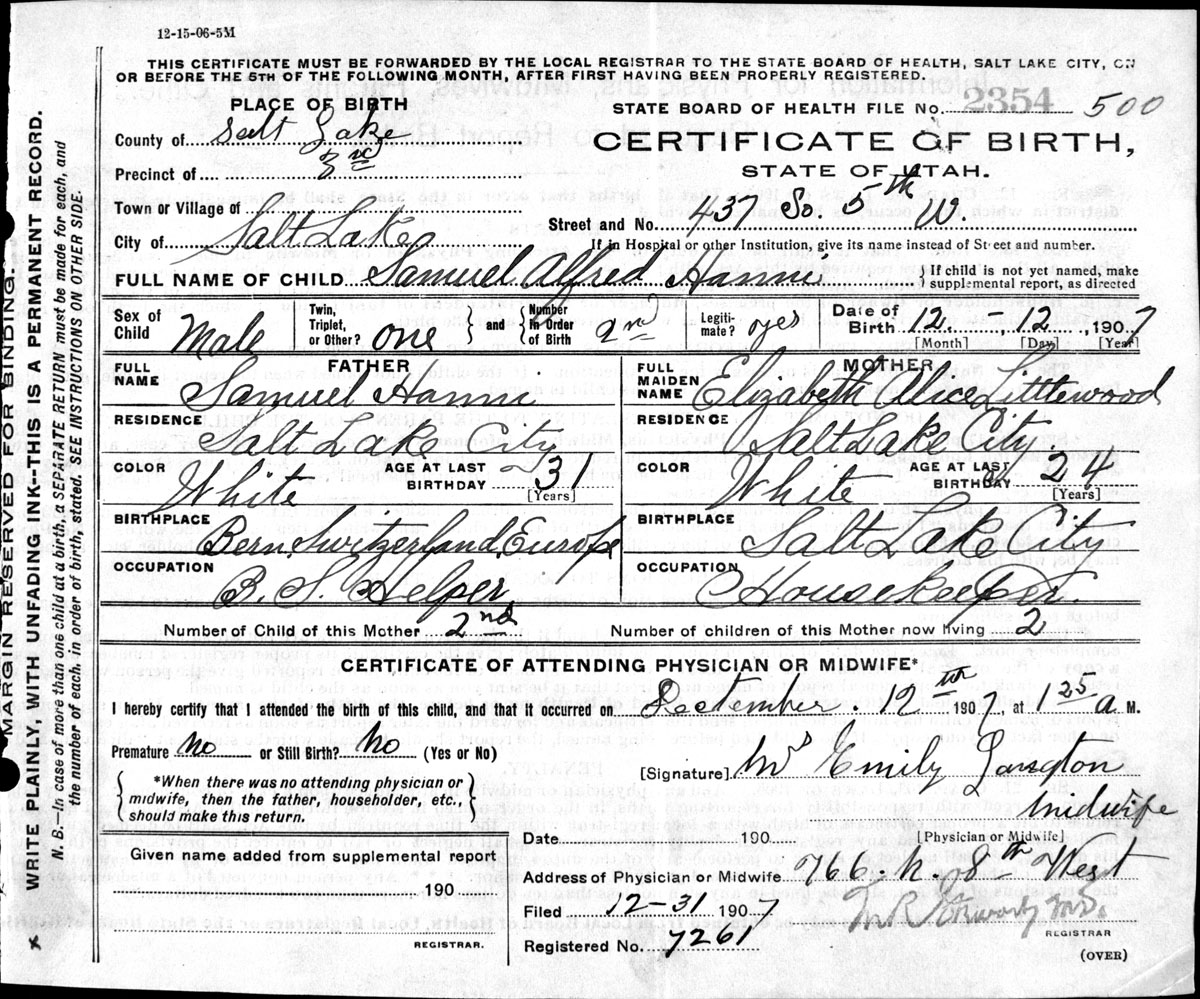 12-15-06-5M
THIS CERTIFICATE MUST BE FORWARDED BY THE LOCAL REGISTRAR TO THE STATE BOARD OF HEALTH, SALT LAKE CITY, ON
OR BEFORE THE 5TH OF THE FOLLOWING MONTH, AFTER FIRST HAVING BEEN PROPERLY REGISTERED.
PLACE OF BIRTH
County of Salt Lake
Precinct of 3rd
Town or Village of
City of Salt Lake
STATE BOARD OF HEALTH FILE No. 2354 500
CERTIFICATE OF BIRTH,
STATE OF UTAH.
Street and No. 437 So. 5th W.
If in Hospital or other Institution, give its name instead of Street and number.
FULL NAME OF CHILD Samuel Alfred Hanni { If child is not yet named, make
supplemental report, as directed
Sex of Child Male
Twin, Triplet, or Other? one } and { Number in Order of Birth 2nd
Legitimate? yes
Date of Birth 12 - 12, 1907
[Month] [Day] [Year]
FATHER
FULL NAME Samuel Hanni
RESIDENCE Salt Lake City
COLOR White AGE AT LAST BIRTHDAY 31
[Years]
BIRTHPLACE Bern, Switzerland, Europe
OCCUPATION B. S. Helper
MOTHER
FULL MAIDEN NAME Elizabeth Alice Littlewood
RESIDENCE Salt Lake City
COLOR White AGE AT LAST BIRTHDAY 24
[Years]
BIRTHPLACE Salt Lake City
OCCUPATION Housekeeper.
Number of Child of this Mother 2nd Number of children of this Mother now living 2
CERTIFICATE OF ATTENDING PHYSICIAN OR MIDWIFE*
I hereby certify that I attended the birth of this child, and that it occurred on December. 12th 1907 at 1 25 a M.
Premature no or Still Birth? no (Yes or No)
{ *When there was no attending physician or
midwife, then the father, householder, etc.,
should make this return. }
Given name added from supplemental report
190
REGISTRAR.
[Signature] Mrs Emily Langton
Midwife
Date 190 [Physician or Midwife]
Address of Physician or Midwife 766. N. 8th West
Filed 12-31 1907
REGISTRAR
Registered No. 7261
(OVER)
MARGIN RESERVED FOR BINDING.
WRITE PLAINLY, WITH UNFADING INK--THIS IS A PERMANENT RECORD.
N. B.—In case of more than one child at a birth, a SEPARATE RETURN must be made for each, and
the number of each, in order of birth, stated. SEE INSTRUCTIONS ON OTHER SIDE.